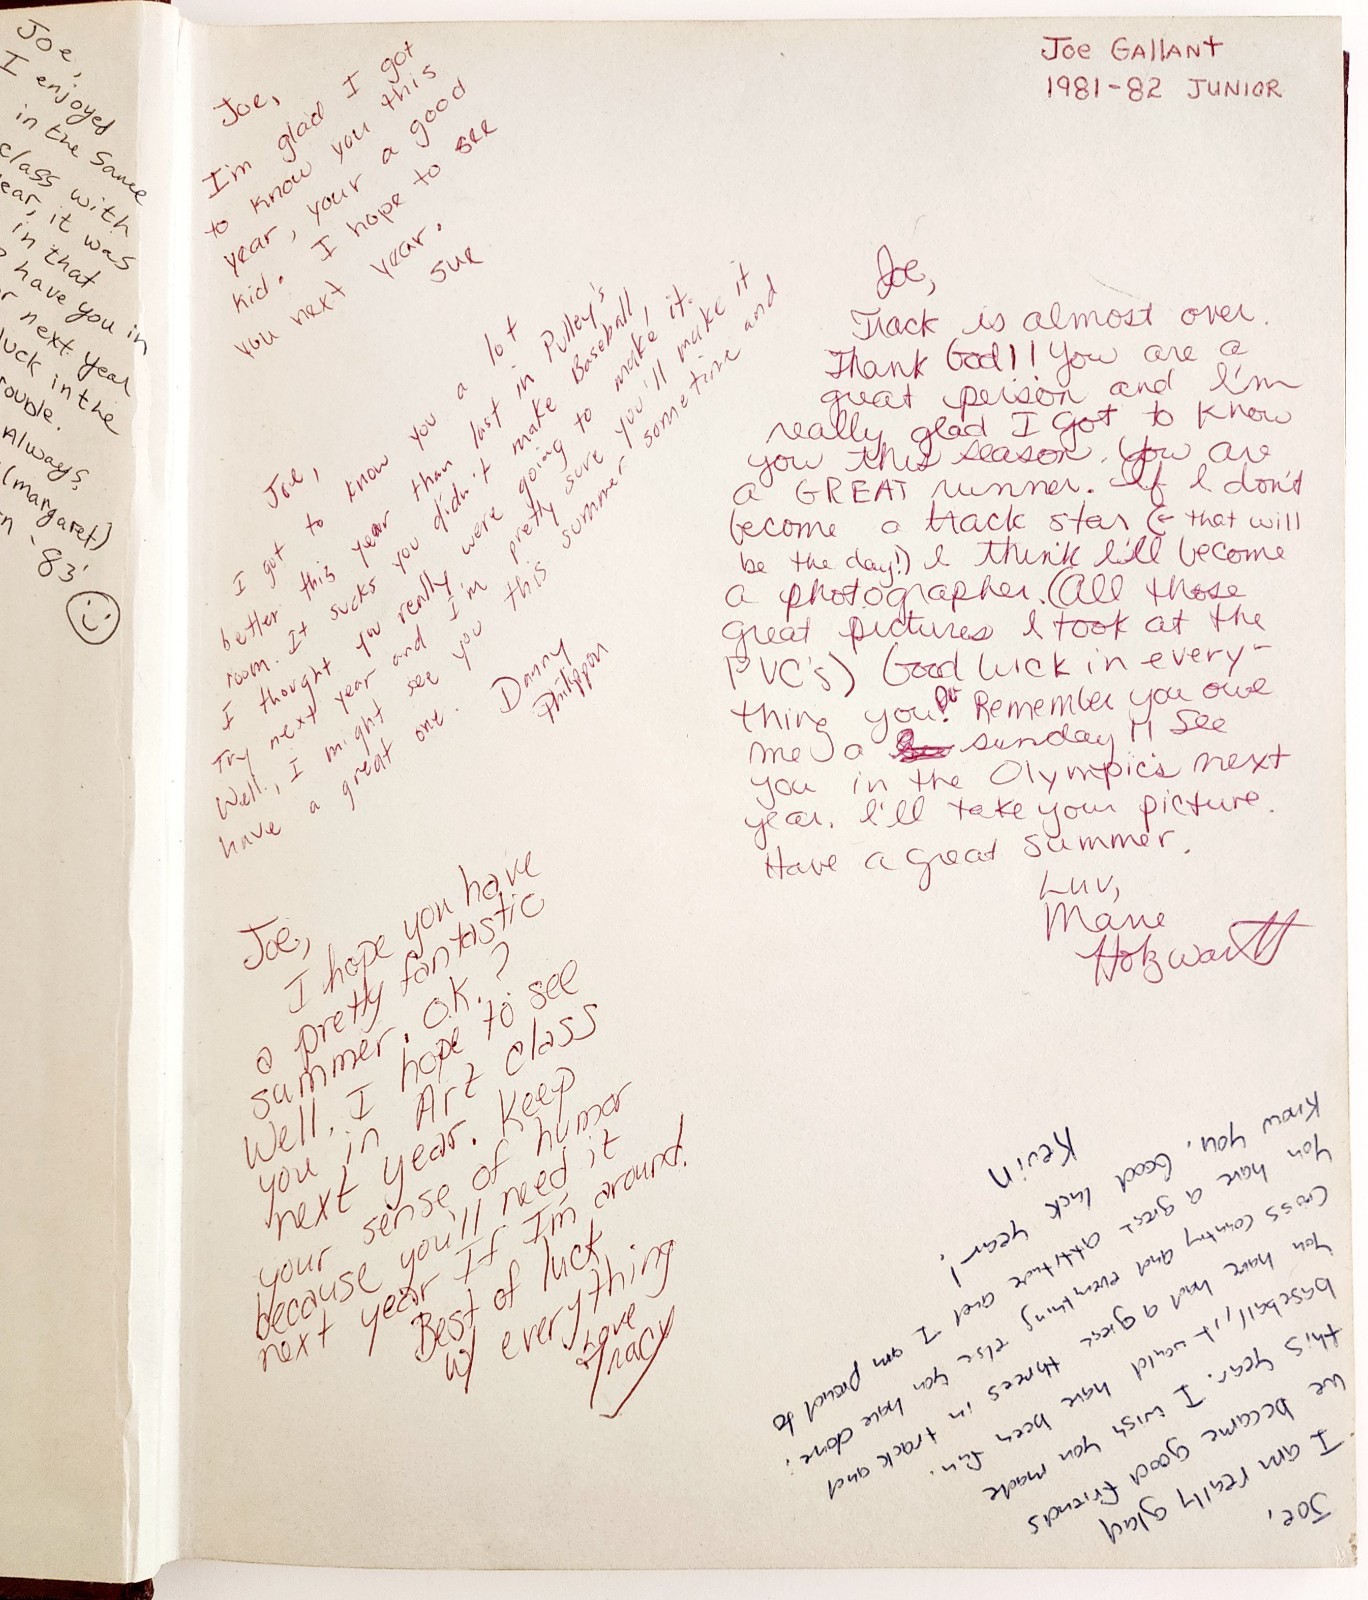 Joe,
I enjoyed
in the same
class with
ear, it was
in that
have you in
r next year
luck in the
rouble.
Always,
(margaret)
n '83'
Joe Gallant
1981-82 Junior
Joe,
I'm glad I got
to know you this
year, your a good
kid. I hope to see
you next year.
Sue
Joe,
I got to know you a lot
better this year than last in Pulley's
room. It sucks you didn't make Baseball,
I thought you really were going to make it.
Try next year and I'm pretty sure you'll make it
Well, I might see you this summer sometime and
have a great one.
Danny
Philippon
Joe,
I hope you have
a pretty fantastic
summer, O.K.?
Well, I hope to see
you in Art class
next year. Keep
your sense of humor
because you'll need it
next year If I'm around.
Best of luck
w/ everything
Tracy
Joe,
Track is almost over.
Thank God!! You are a
great person and I'm
really glad I got to know
you this season. You are
a GREAT runner. If I don't
become a track star (← that will
be the day!) I think I'll become
a photographer. (All those
great pictures I took at the
PVC's) Good luck in every-
thing you! Remember you owe
me a sunday!! See
you in the Olympic's next
year. I'll take your picture.
Have a great summer.
Luv,
Marie
Holzwarth
Joe,
I am really glad
we became good friends
this year. I wish you made
baseball, it would have been fun.
You have had a great threes in track and
Cross Country and everything else you have done.
You have a great attitude and I am proud to
know you. Good luck next year!
Kevin